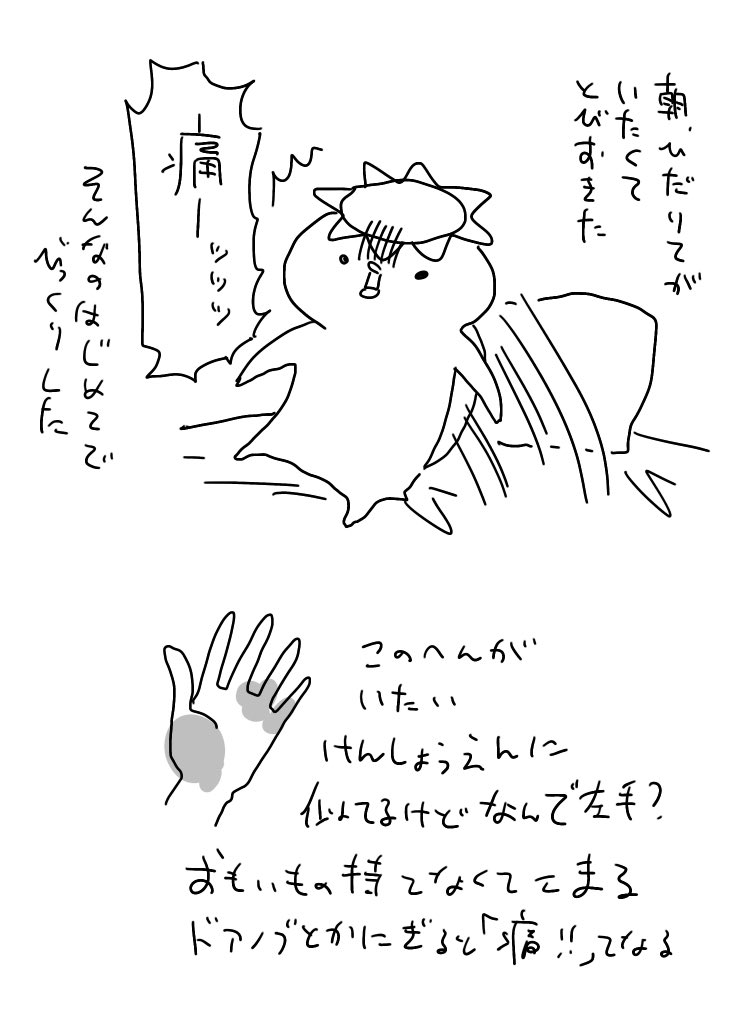 朝、ひだりてが
いたくて
とびおきた
痛ーッッッ
そんなのはじめてで
びっくりした
このへんが
いたい
けんしょうえんに
似てるけどなんで左手?
おもいもの持てなくてこまる
ドアノブとかにぎると「痛!!」てなる